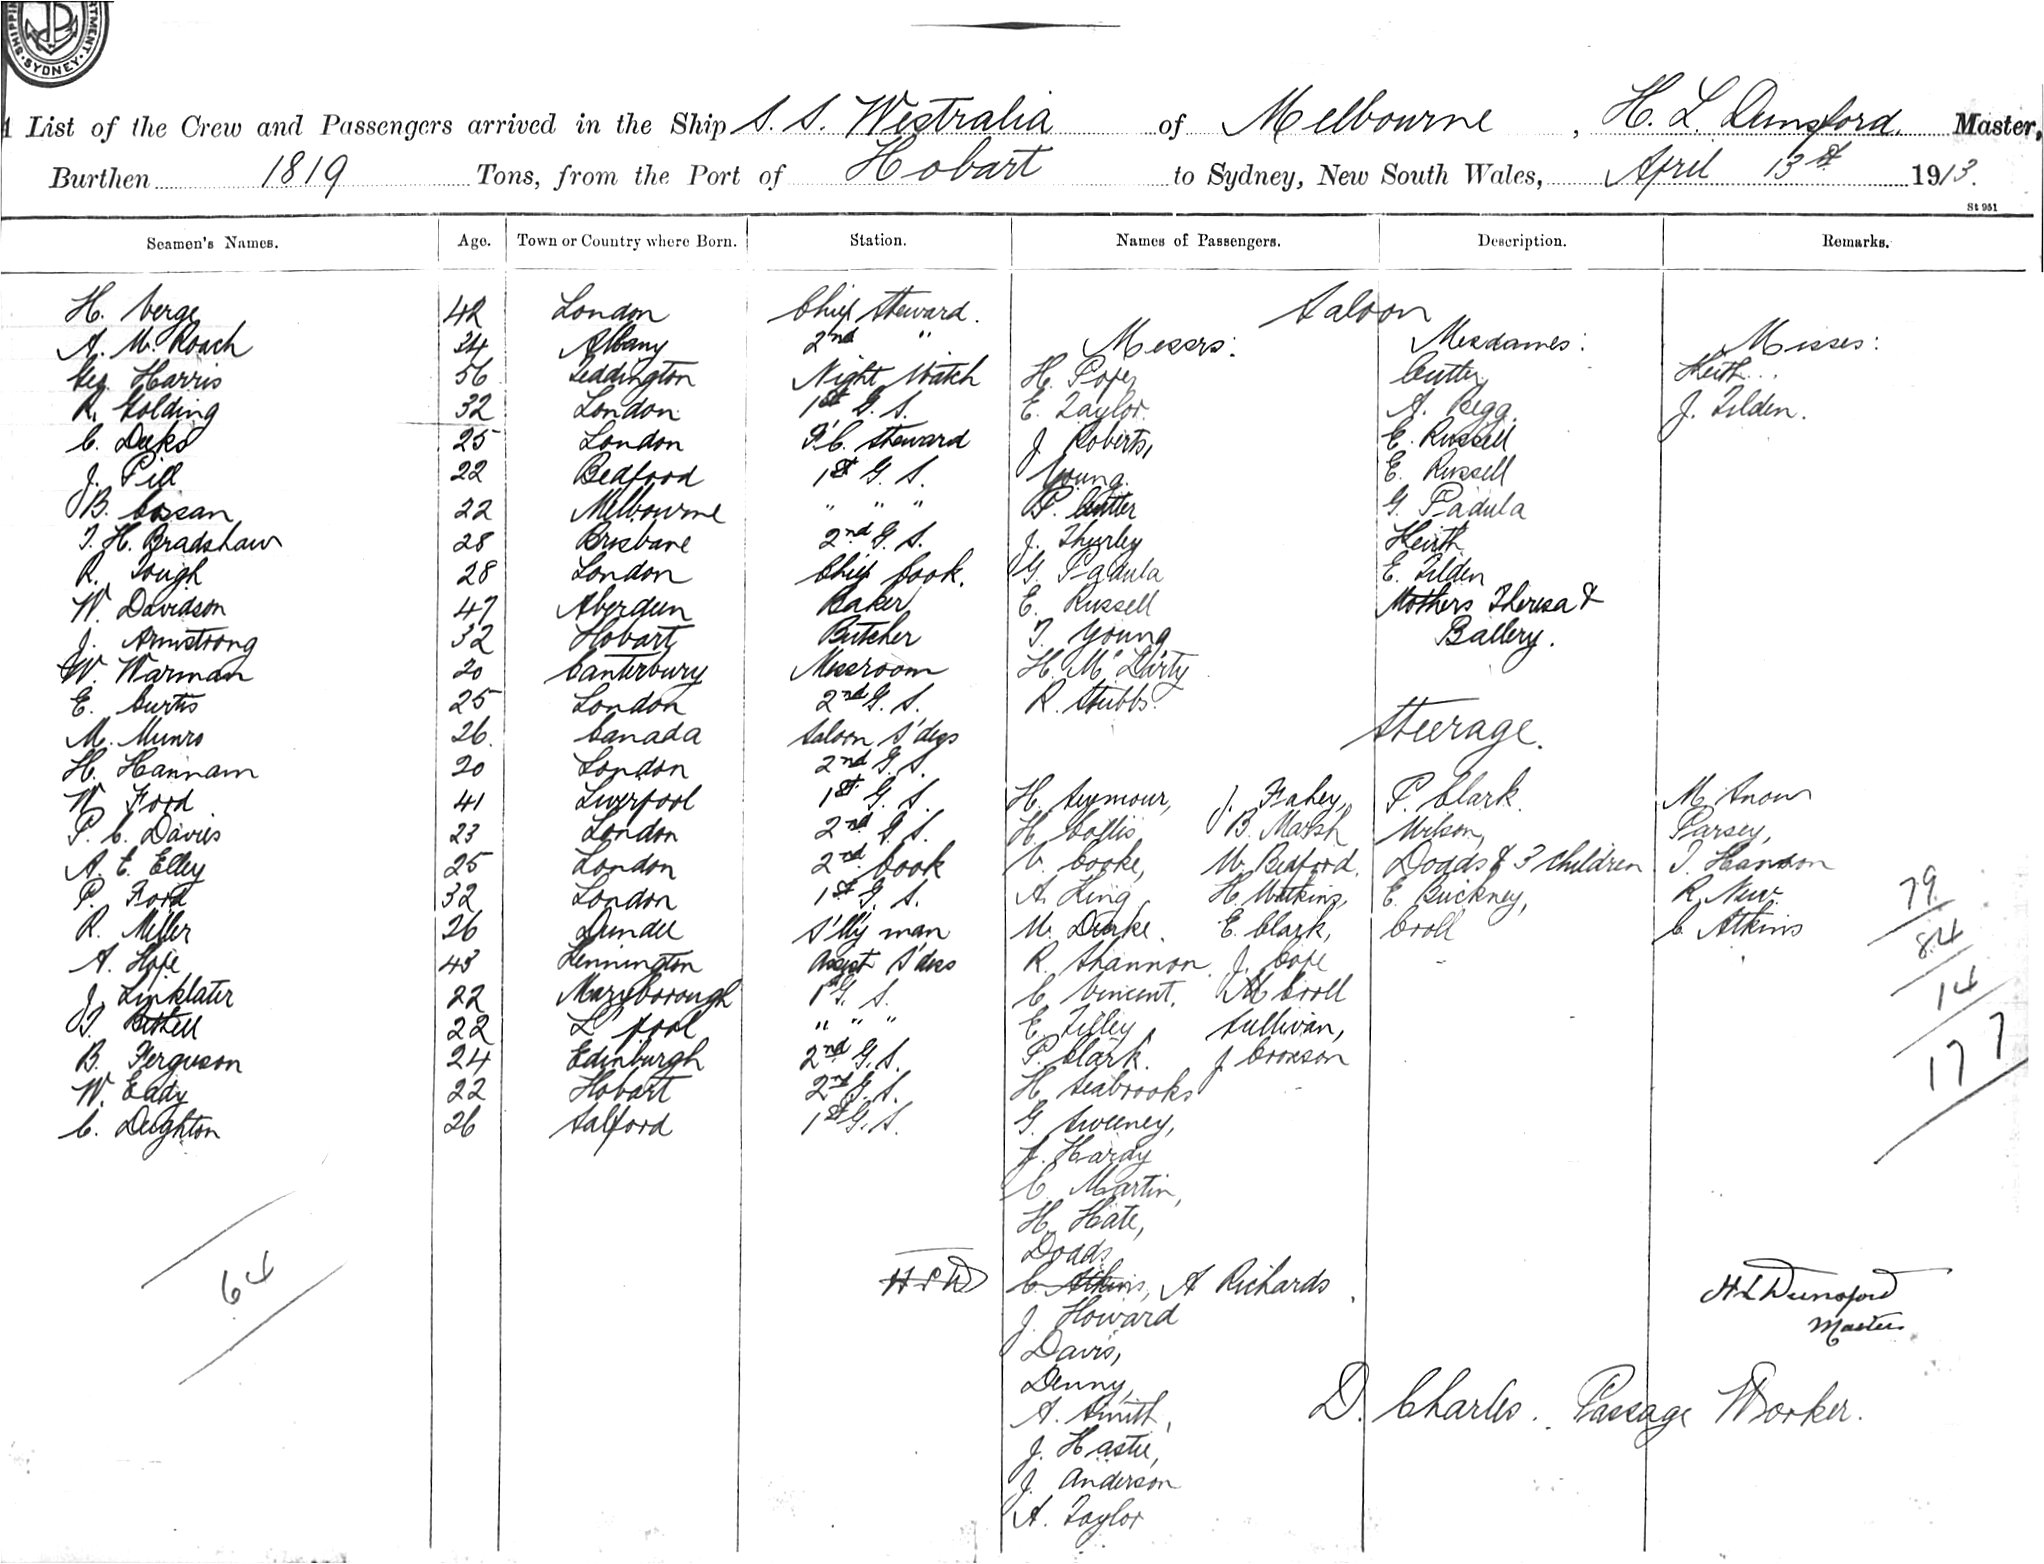 SHIPPING DEPARTMENT SYDNEY
List of the Crew and Passengers arrived in the Ship S. S. Westralia of Melbourne, H. L. Dunsford. Master,
Burthen 1819 Tons, from the Port of Hobart to Sydney, New South Wales, April 13th 1913.
St 951
Seamen's Names. Age. Town or Country where Born. Station. Names of Passengers. Description. Remarks.
H. Verge 42 London Chief Steward. Saloon
A. M. Roach 34 Albany 2nd " Messrs: Mesdames: Misses:
Geo. Harris 56 Teddington Night Watch H. Pope Cutter Keith
R. Golding 32 London 1st G. S. E. Taylor. A. Begg. J. Tilden.
C. Deeks 25 London F.C. Steward J. Roberts, E. Russell
J. Pill 22 Bedford 1st G. S. Young. E. Russell
B. Cossan 22 Melbourne " " " P. Cutter G. Padula
T. H. Bradshaw 28 Brisbane 2nd G. S. J. Thurley Keith
R. Tough 28 London Chief Cook. G. Padula E. Tilden
W. Davidson 47 Aberdeen Baker E. Russell Mothers Theresa &
J. Armstrong 32 Hobart Butcher T. Young Ballery.
W. Warman 20 Canterbury Messroom H. Mc Dirty
E. Curtis 25 London 2nd G. S. R. Stubbs.
M. Munro 26. Canada Saloon S'dess Steerage.
H. Hannam 20 London 2nd G. S.
W. Ford 41 Liverpool 1st G. S. H. Seymour, J. Fahey, P. Clark. M. Snow
P. C. Davies 23 London 2nd G. S. H. Collis, B. Marsh Wilson, Parsey,
A. E. Elley 25 London 2nd Cook V. Cooke, W. Bedford. Dodds & 3 Children T. Hanson
P. Ford 32 London 1st G. S. A. King H. Watkins, E. Buckney, R. New. 79
R. Miller 26 Dundee S'lly man W. Durke. E. Clark, Croll C. Atkins 84
A. Hope 43 Kennington Assist S'dess R. Shannon, J. Cope 14
J. Linklater 22 Maryborough 1st G. S. C. Vincent, M Croll
T. Bithell 22 L'pool " " " E. Tilley Sullivan, 177
B. Ferguson 24 Edinburgh 2nd G. S. P. Clark. J. Croxson
W. Eady 22 Hobart 2nd G. S. H. Seabrooks
C. Deighton 26 Salford 1st G. S. G. Sweeney,
J. Hardy
C. Martin,
H. Hate,
Dodds.
64 H L D C. Atkins, A Richards. H L Dunsford
J. Howard Master
Davis,
Denny,
A. Smith, D. Charles. Passage Worker.
J. Hastie,
J. Anderson
A. Taylor